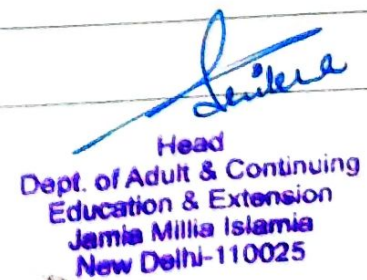 Head
Dept. of Adult & Continuing
Education & Extension
Jamia Millia Islamia
New Delhi-110025